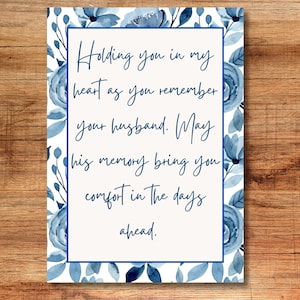 Holding you in my
heart as you remember
your husband. May
his memory bring you
comfort in the days
ahead.